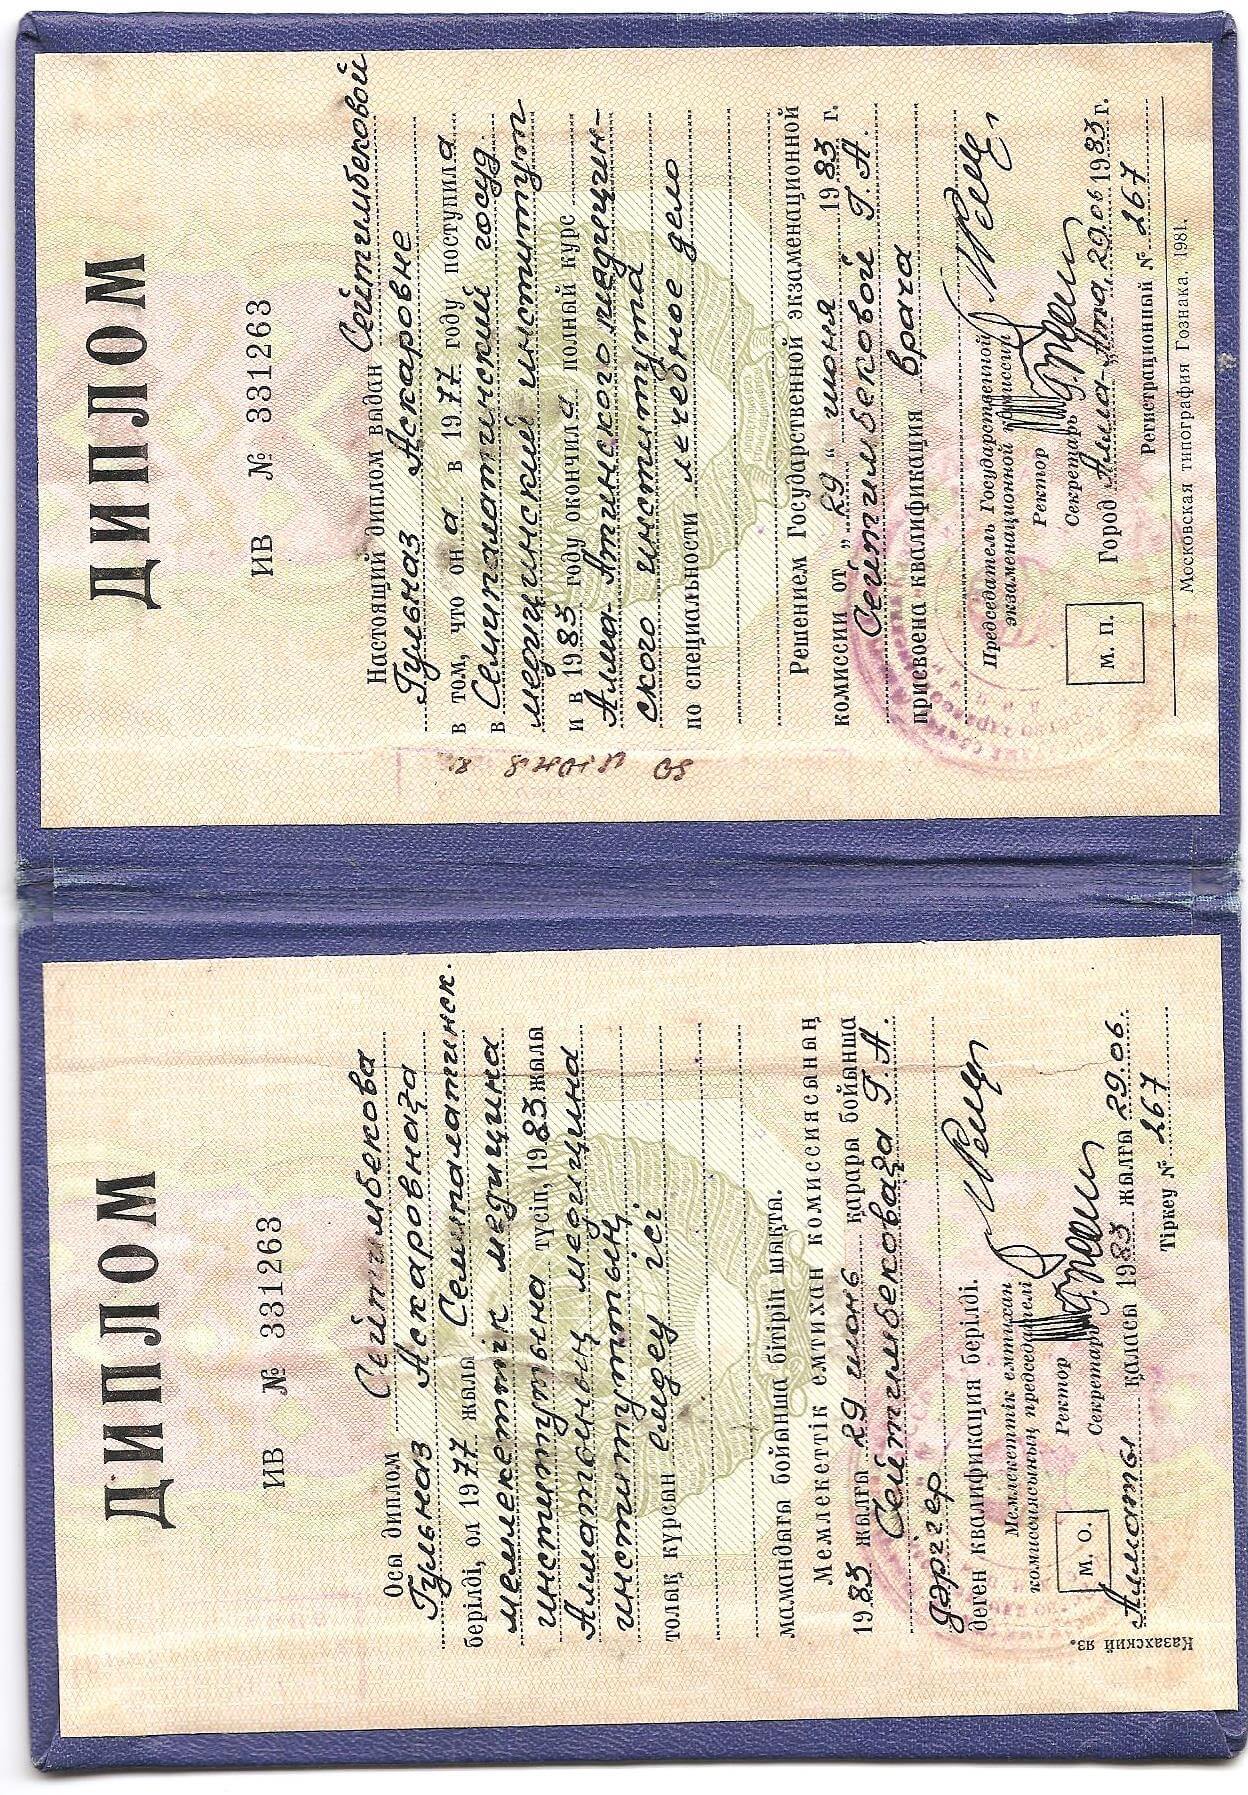 ДИПЛОМ
ИВ № 331263
Осы диплом Сейтимбекова
Гульназ Аскаровнаға
берілді, ол 1977 жылы Семипалатинск.
мемлекеттік медицина
институтына түсіп, 1983 жылы
Алматының медицина
институтының
толық курсын емдеу ісі
мамандығы бойынша бітіріп шықты.
Мемлекеттік емтихан комиссиясының
1983 жылғы 29 июнь қарары бойынша
Сейтимбековаға Г. А.
дәрігер
деген квалификация берілді.
Мемлекеттік емтихан
комиссиясының председателі
Ректор
М. О.
Секретарь
Алматы қаласы 1983 жылғы 29.06.
Тіркеу № 267
Казахский яз.
ДИПЛОМ
ИВ № 331263
Настоящий диплом выдан Сейтимбековой
Гульназ Аскаровне
в том, что он а в 1977 году поступила
в Семипалатинский госуд.
медицинский институт
и в 1983 году окончила полный курс
Алма-Атинского медицин-
ского института
по специальности лечебное дело
Решением Государственной экзаменационной
комиссии от „ 29 “ июня 1983 г.
Сейтимбековой Г. А.
присвоена квалификация врача
Председатель Государственной
экзаменационной комиссии
Ректор
М. П.
Секретарь
Город Алма-Ата, 29.06 1983 г.
Регистрационный № 267
Московская типография Гознака. 1981.